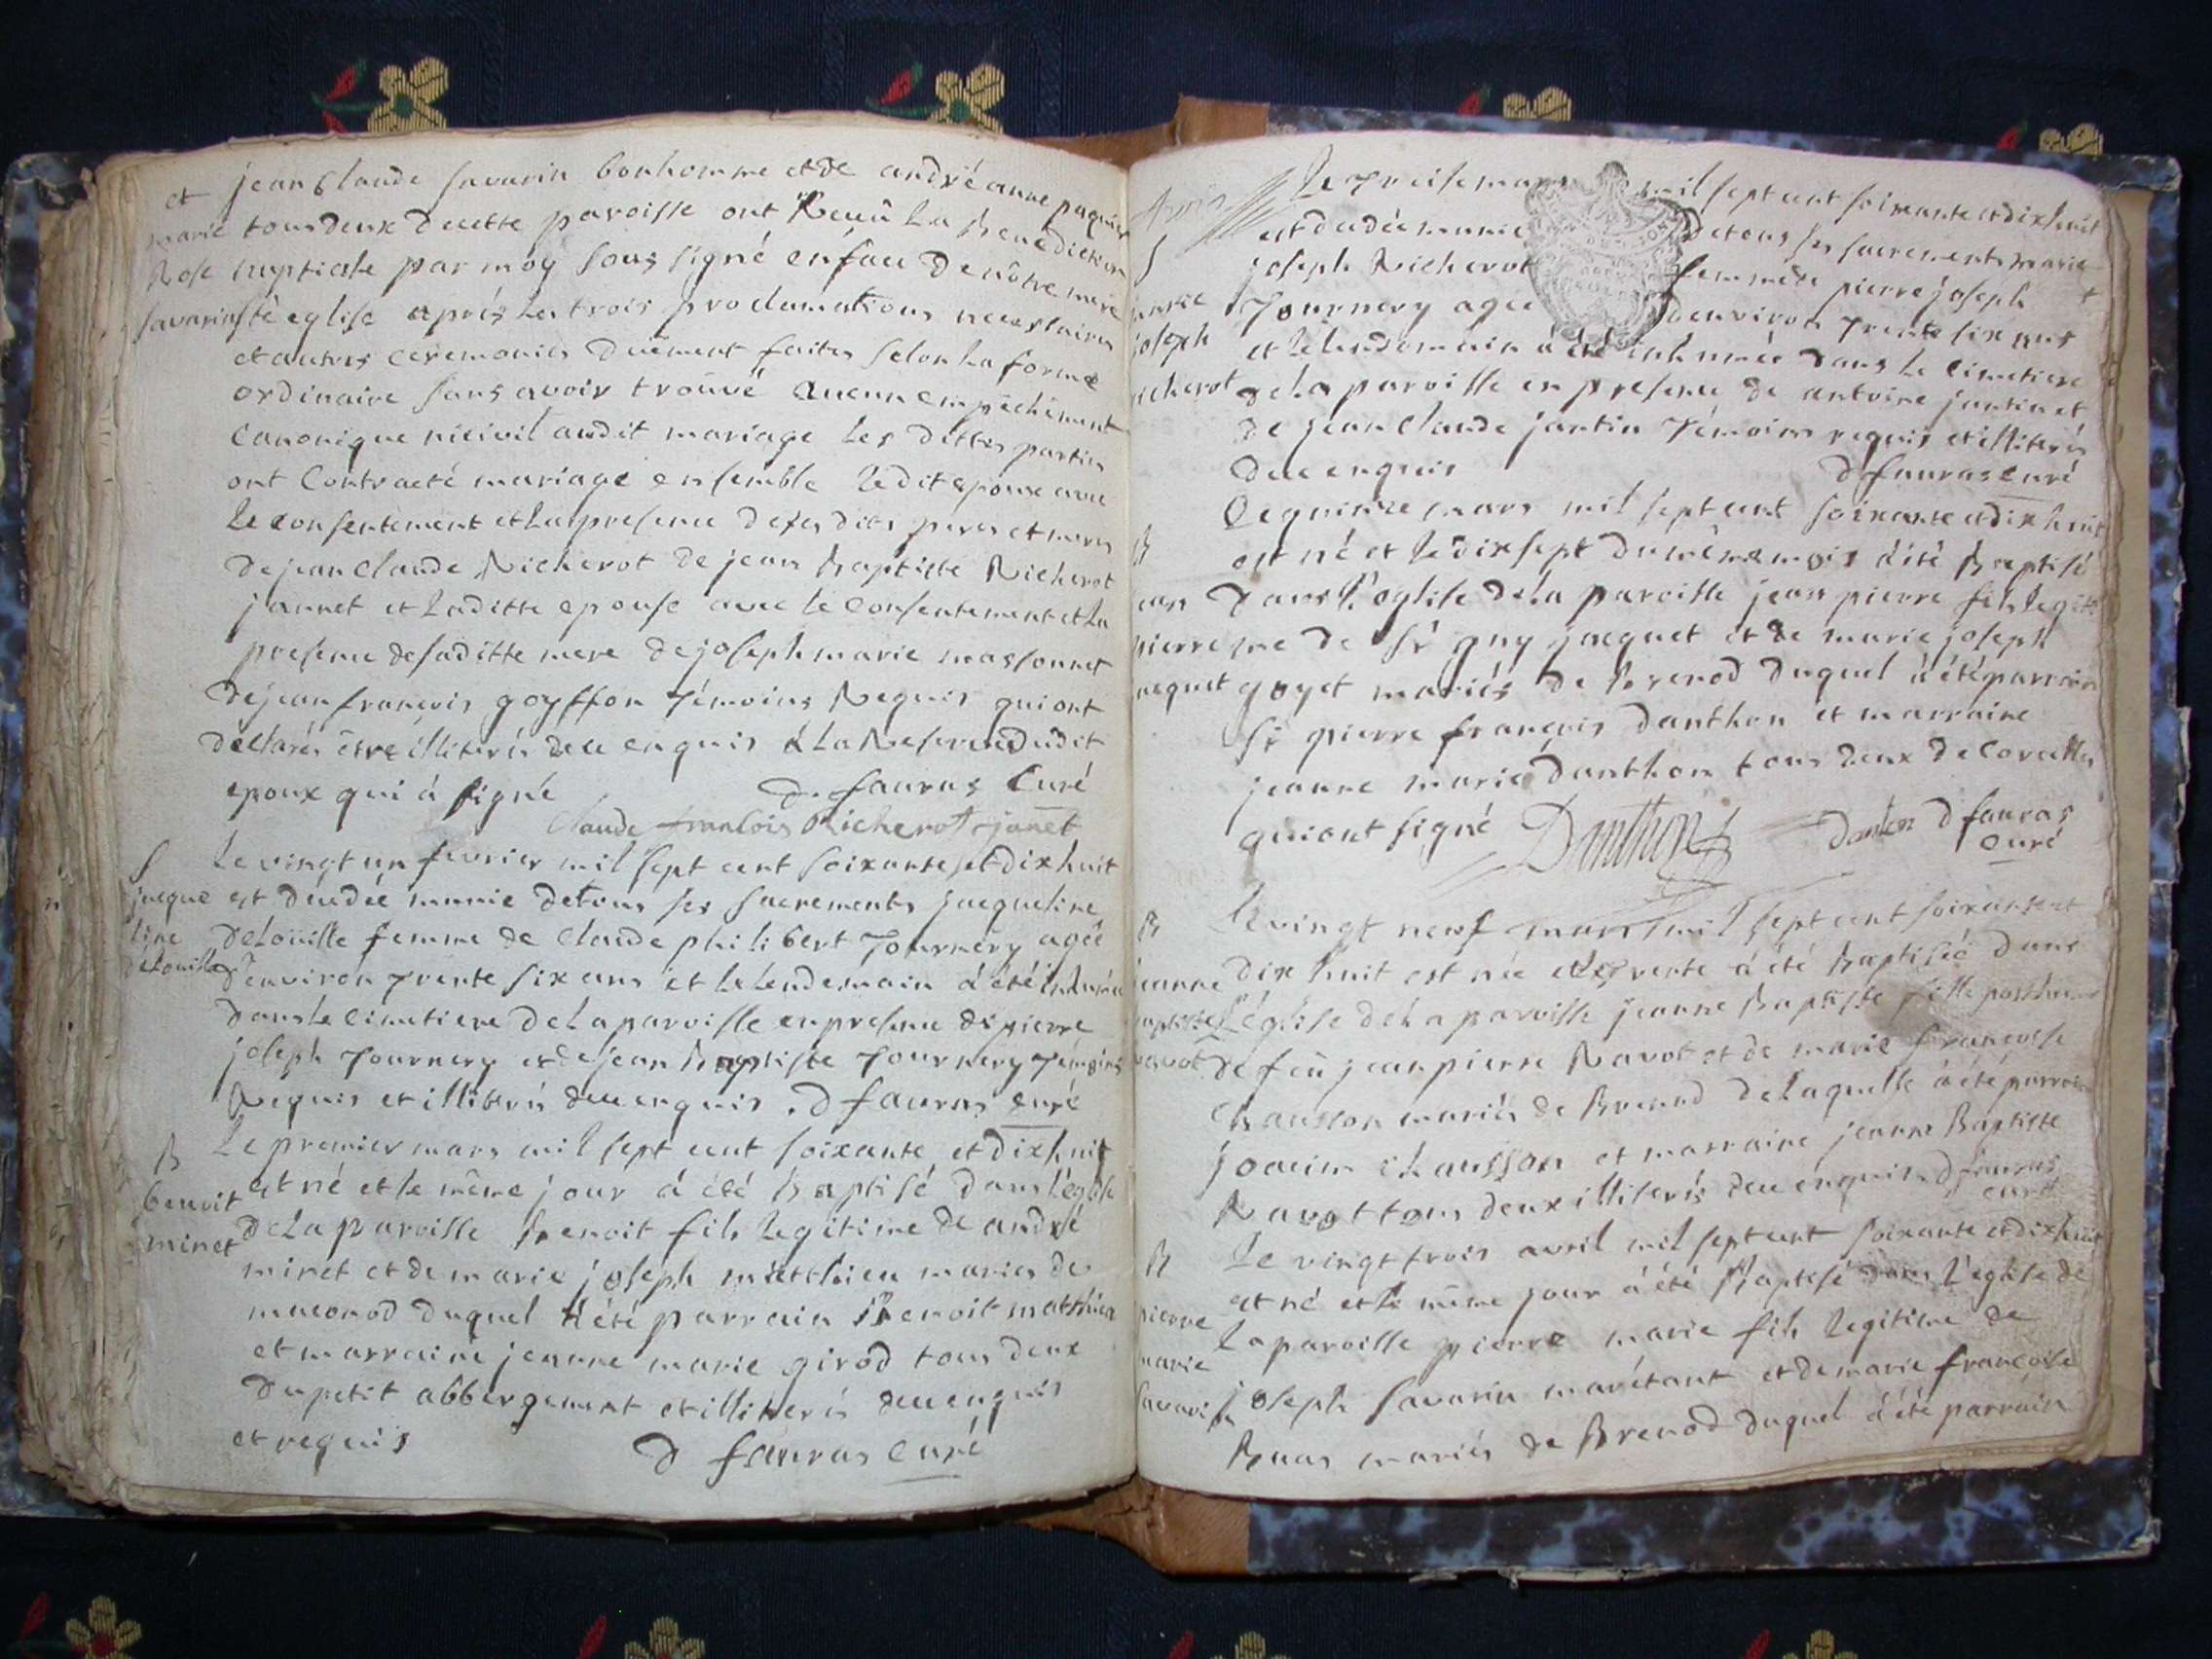 et jean Claude savarin bonhomme et de andré anne paquier
marie tous deux de cette paroisse ont Receu La Benediction
Rose nuptiale par moy sous signé en face de nôtre mere
savarin ste eglise aprés les trois proclamations necessaires
et autres ceremonies duëment faites selon la forme
ordinaire sans avoir trouvé aucun empêchement
Canonique ni civil audit mariage les dittes parties
ont Contracté mariage ensemble Ledit epoux avec
Le consentement et la presence de ses dits peres et meres
de jean claude Richerot de jean baptiste Richerot
jannet et laditte epouse avec le Consentement et la
presence de saditte mere de joseph marie massonnet
de jean françois goyffon témoins Requis qui ont
déclarés être illiterés de ce enquis á la Reserve dudit
epoux qui á signé d. fauras Curé
Claude francois Richerot janet
S Le vingt un fevrier mil sept cent soixante et dix huit
jacque est décédée munie de tous ses sacrements jacqueline
line delouille femme de claude philibert Tournery agée
delouille d'environ trente six ans et le lendemain á été inhumée
dans le cimetiere de la paroisse en presence de pierre
joseph Tournery et de jean baptiste Tournery témoins
Requis et illiterés de ce enquis . d fauras curé
B Le premier mars mil sept cent soixante et dix huit
benoit est né et le même jour á été baptisé dans l'église
minet de la paroisse benoit fils legitime de andré
minet et de marie joseph matthieu mariés de
maconod duquel á été parrain Benoit matthieu
et marraine jeanne marie girod tous deux
du petit abbergement et illiterés de ce enquis
et requis d fauras curé
Le treise mars mil sept cent soixante et dix huit
S est decedée munie de tous ses sacrements marie
joseph Richerot femme de pierre joseph
marie Tournery agée d'environ trente six ans
joseph et le lendemain á été inhumée dans le cimetiere
richerot de la paroisse en presence de antoine jantin et
de jean claude jantin témoins requis et illiterés
de ce enquis d fauras curé
Le quinze mars mil sept cent soixante et dix huit
B est né et le dix sept du même mois á été baptisé
jean dans l'eglise de la paroisse jean pierre fils legiti
pierre me de Sr guy jacquet et de marie joseph
jacquet goyet mariés de brenod duquel á été parrain
Sr pierre françois danthon et marraine
jeanne marie danthon tous deux de Corcelles
qui ont signé Danthon danton d fauras
curé
B Le vingt neuf mars mil sept cent soixante et
jeanne dix huit est née et le trente á été baptisée dans
baptiste L'église de la paroisse jeanne baptiste fille posthume
ravot de feü jean pierre Ravot et de marie françoise
Chausson mariés de Brenod de laquelle á été parrain
joacim chausson et marraine jeanne Baptiste
Ravot tous deux illiterés de ce enquis d fauras
curé
B Le vingt trois avril mil sept cent soixante et dix huit
est né et le même jour á été Baptisé dans l'eglise de
pierre la paroisse pierre marie fils legitime de
marie joseph savarin marétant et de marie françoise
savarin Buas mariés de Brenod duquel á été parrain